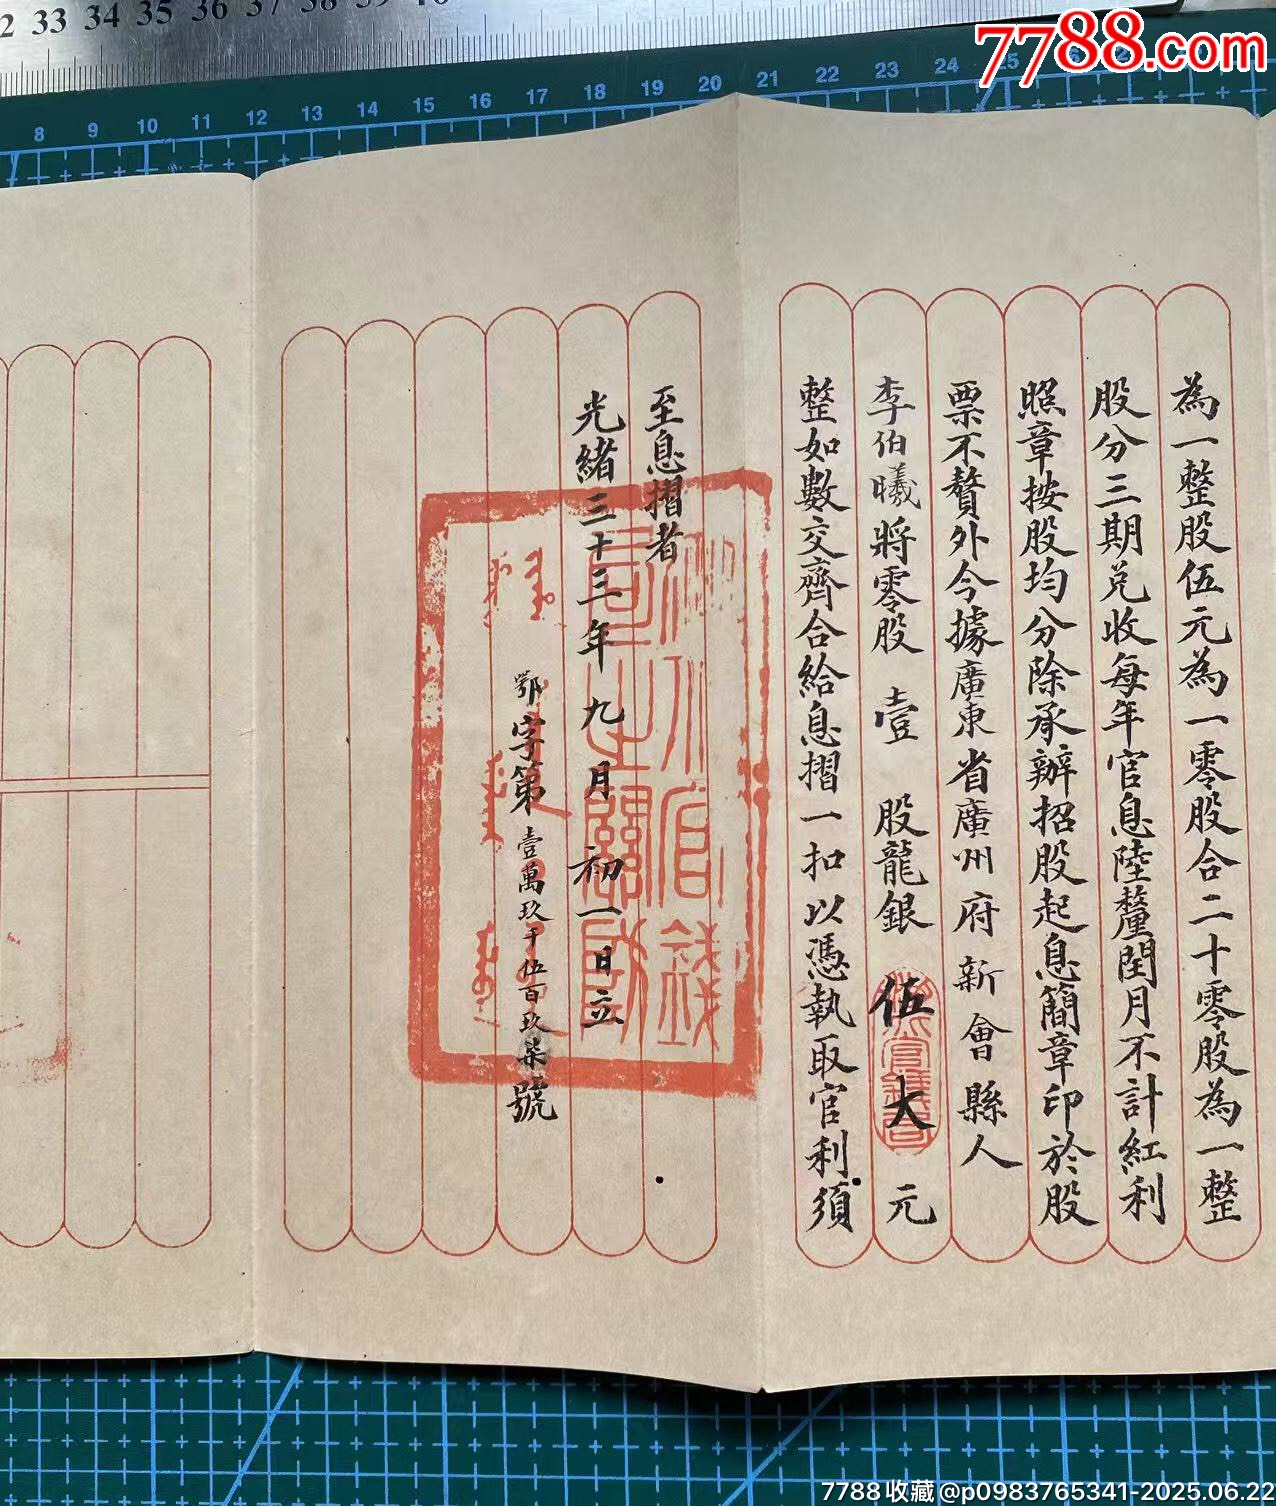 為一整股伍元為一零股合二十零股為一整
股分三期兌收每年官息陸釐閏月不計紅利
照章按股均分除承辦招股起息簡章印於股
票不贅外今據廣東省廣州府新會縣人
李伯曦將零股壹股龍銀伍大元
整如數交齊合給息摺一扣以憑執取官利須
至息摺者
光緒三十三年九月初一日立
鄂字第壹萬玖千伍百玖柒號
33 34 35 36 37 38 39 40
8 9 10 11 12 13 14 15 16 17 18 19 20 21 22 23 24 25
7788.com
7788收藏@p0983765341-2025.06.22